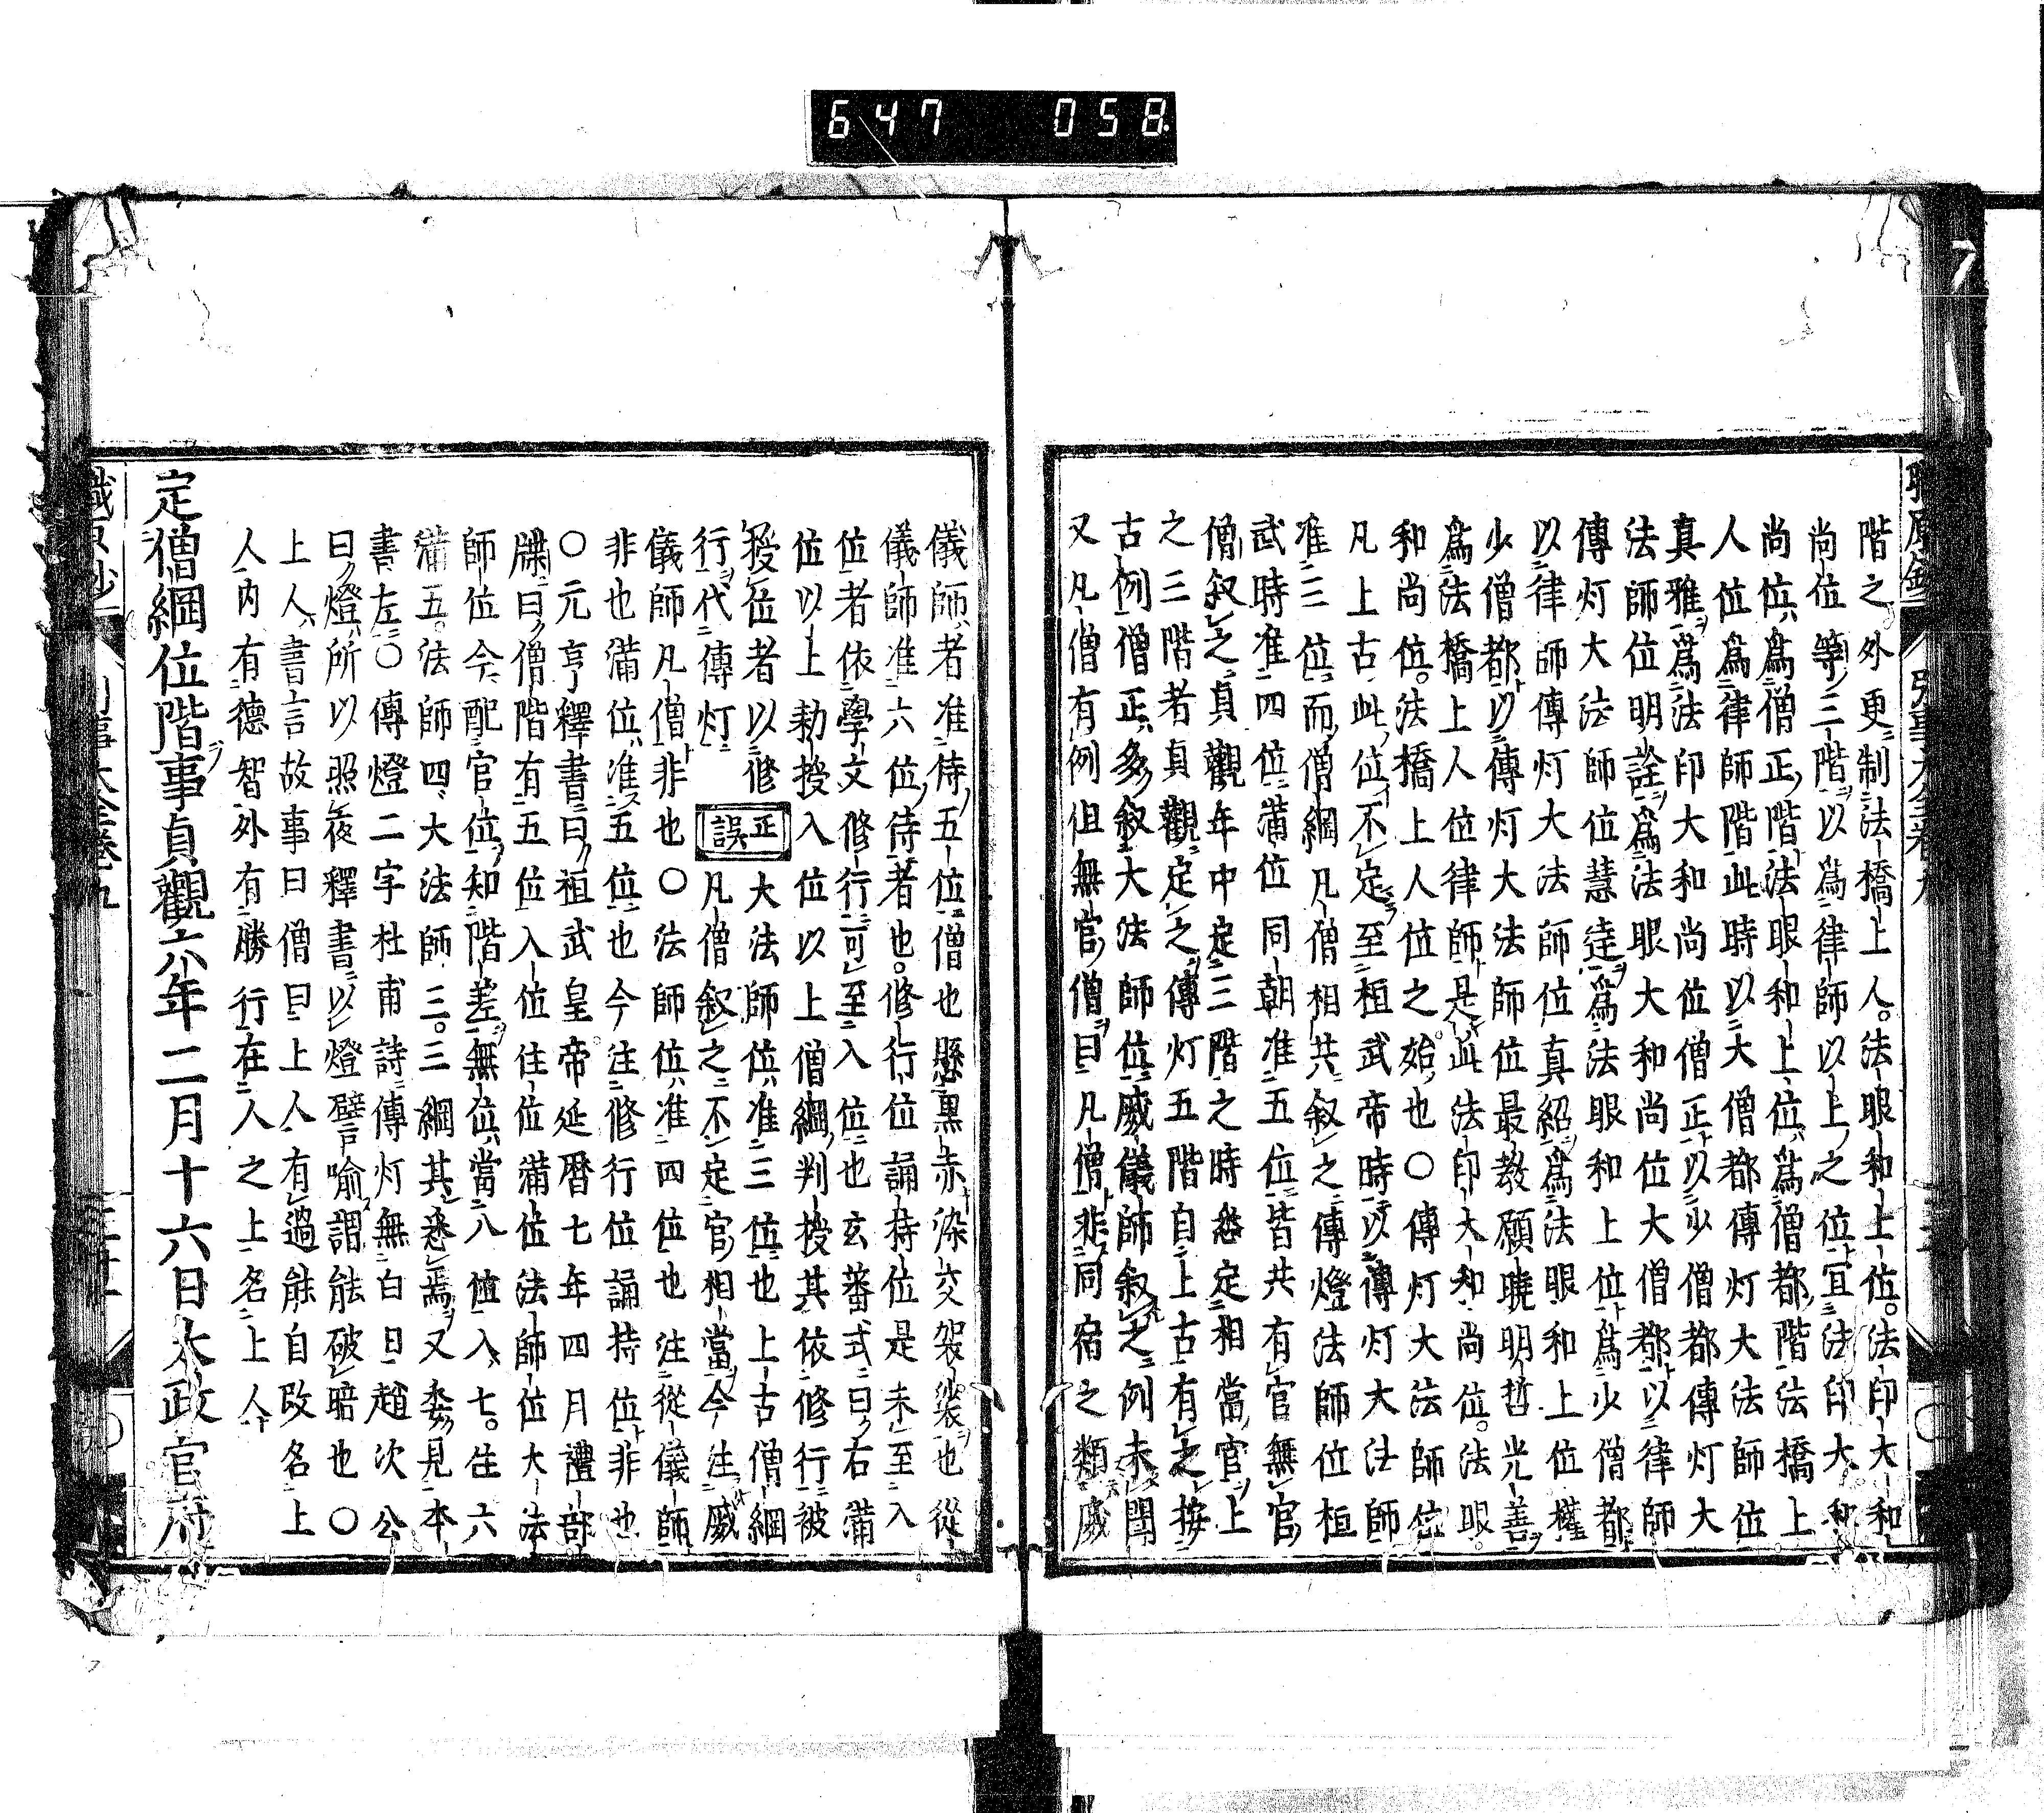 647 058
階之外更制法橋上人。法眼和上位。法印大和
尚位等三階以爲律師以上之位宜法印大和
尚位爲僧正階法眼和上位爲僧都階法橋上
人位爲律師階此時以大僧都傳灯大法師位
真雅爲法印大和尚位僧正以少僧都傳灯大
法師位明詮爲法眼大和尚位大僧都以律師
傳灯大法師位慧達爲法眼和上位爲少僧都
以律師傳灯大法師位真紹爲法眼和上位權
少僧都以傳灯大法師位最教願曉明哲光善
爲法橋上人位律師是此法印大和尚位。法眼
和尚位。法橋上人位之始也〇傳灯大法師位
凡上古此位不定至桓武帝時以傳灯大法師
准三位而僧綱凡僧相共叙之傳燈法師位桓
武時准四位滿位同朝准五位皆共有官無官
僧叙之貞觀年中定三階之時悉定相當官上
之三階者貞觀定之傳灯五階自上古有之按
古例僧正多叙大法師位威儀師叙之例未聞
又凡僧有例但無官僧曰凡僧非同宿之類威
儀師者准侍五位僧也懸黒赤染交袈裟也從
儀師准六位侍者也。修行位誦持位是未至入
位者依學文修行可至入位也玄蕃式曰右滿
位以上勅授入位以上僧綱判授其依修行被
授位者以修行代傳灯
正誤
大法師位准三位也上古僧綱
凡僧叙之不定官相當今注威
儀師凡僧非也〇法師位准四位也注從儀師
非也滿位准五位也今注修行位誦持位非也
〇元亨釋書曰祖武皇帝延暦七年四月禮部
牒曰僧階有五位入位住位滿位法師位大法
師位今配官位知階差無位當八位入七。住六
滿五。法師四大法師三。三綱其悉焉又委見本
書左〇傳燈二字杜甫詩傳灯無白日趙次公
曰燈所以照夜釋書以燈譬喻謂能破暗也〇
上人書言故事曰僧曰上人有過能自改名上
人内有德智外有勝行在人之上名上人
定僧綱位階事貞觀六年二月十六日太政官府